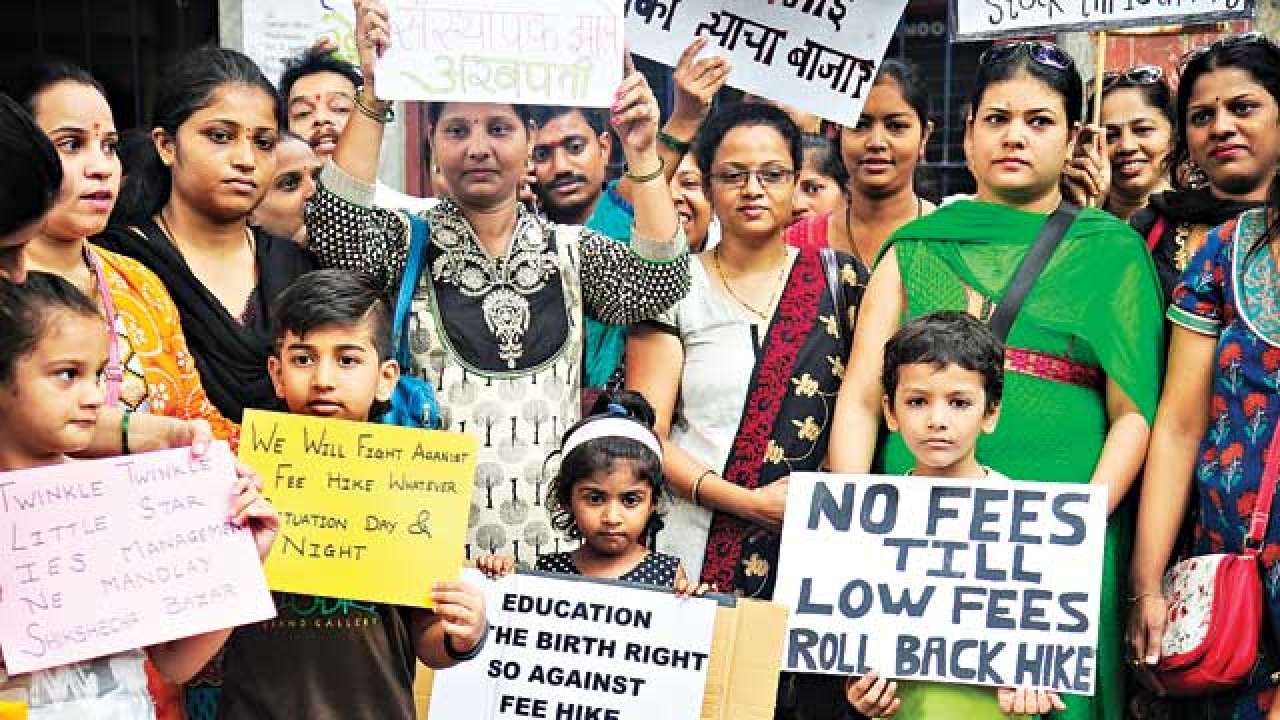 संस्थापक झाले
अरबपती
त्याचा बाजार
TWINKLE TWINKLE
LITTLE STAR
IES MANAGEM
NE MANDLAY
SHIKSHECHA BAZAR
WE WILL FIGHT AGAINST
FEE HIKE WHATEVER
TUATION DAY &
NIGHT
EDUCATION
THE BIRTH RIGHT
SO AGAINST
FEE HIKE
NO FEES
TILL
LOW FEES
ROLL BACK HIKE